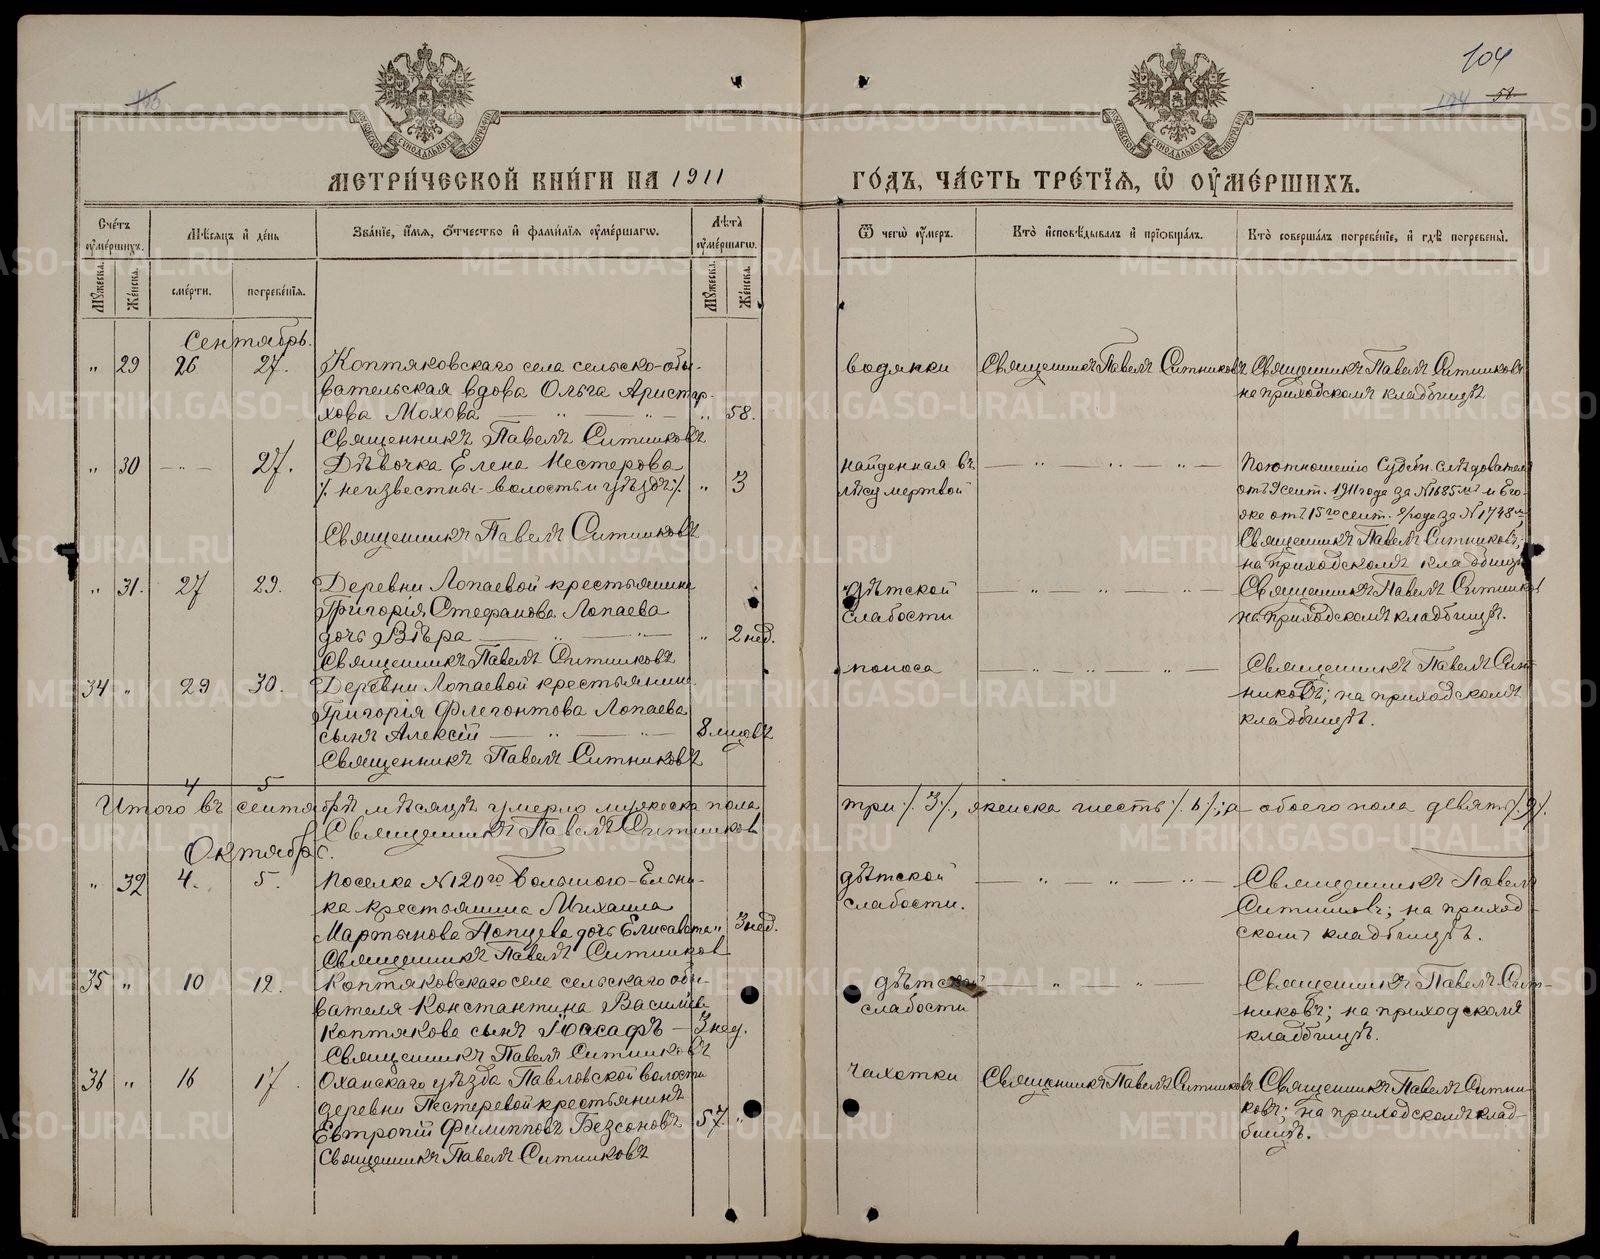 104
103
104 58
МЕТРИ́ЧЕСКОЙ КНИ́ГИ НА 1911
ГО́ДЪ, ЧА́СТЬ ТРЕ́ТІЯ, Ѡ ОУ҆МЕ́РШИХЪ.
Сче́тъ оу҆ме́ршихъ.
Мѣ́сяцъ и҆ де́нь
Зва́нїе, и҆́мя, ѻ҆́тчество и҆ фами́лїя оу҆ме́ршагѡ.
Лѣ́та оу҆ме́ршагѡ.
Ѿ чегѡ̀ оу҆́меръ.
Кто̀ и҆сповѣ́дывалъ и҆ прїѡбща́лъ.
Кто̀ соверша́лъ погребе́нїе, и҆ гдѣ̀ погребены̀.
Му́жеска.
Же́нска.
сме́рти.
погребе́нїя.
Му́жеска.
Же́нска.
Сентябрь.
" 29 26 27. Коптяковскаго села сельско-обы-
вательская вдова Ольга Аристар-
хова Мохова — " — " — " 58.
Священникъ Павелъ Ситниковъ
водянки
Священникъ Павелъ Ситниковъ
Священникъ Павелъ Ситниковъ
на приходскомъ кладбищѣ
" 30 — " — 27. Дѣвочка Елена Нестерова
/. неизвестны волость и уѣздъ /. " 3
Священникъ Павелъ Ситниковъ
найденная въ
лѣсу мертвой
— " — " — " —
По отношенію Судебн. слѣдователя
отъ 9 сент. 1911 года за №1685мъ и Его-
же отъ 15го сент. с/года за №1748мъ
Священникъ Павелъ Ситниковъ;
на приходскомъ кладбищѣ
" 31. 27 29. Деревни Лопаевой крестьянина
Григорія Стефанова Лопаева
дочь Вѣра — " — " — " 2 нед.
Священникъ Павелъ Ситниковъ
дѣтской
слабости
— " — " — " —
Священникъ Павелъ Ситниковъ
на приходскомъ кладбищѣ.
34 " 29 30. Деревни Лопаевой крестьянина
Григорія Флегонтова Лопаева
сынъ Алексій — " — " — 8 мѣсцовъ
Священникъ Павелъ Ситниковъ
поноса
— " — " — " —
Священникъ Павелъ Сит-
никовъ; на приходскомъ
кладбищѣ.
4 5
Итого въ сентябрѣ мѣсяцѣ умерло мужеска пола три /. 3 /., женска шесть /. 6 /.; а обоего пола девять /. 9 /.
Священникъ Павелъ Ситниковъ
Октябрь.
" 32 4. 5. Поселка №120го Большого-Ельни-
ка крестьянина Михаила
Мартынова Попцева дочь Елисавета " 3 нед.
Священникъ Павелъ Ситников
дѣтской
слабости.
— " — " — " —
Священникъ Павелъ
Ситниковъ; на приход-
скомъ кладбищѣ.
35 " 10 12. Коптяковскаго села сельскаго обы-
вателя Константина Васильева
Коптякова сынъ Іоасафъ — 3 нед.
Священникъ Павелъ Ситниковъ
дѣтской
слабости
— " — " —
Священникъ Павелъ Сит-
никовъ; на приходскомъ
кладбищѣ.
36 " 16 17. Оханскаго уѣзда Павловской волости
деревни Пестеревой крестьянинъ
Евтропій Филипповъ Безсоновъ 57. "
Священникъ Павелъ Ситниковъ
чахотки
Священникъ Павелъ Ситниковъ
Священникъ Павелъ Ситни-
ковъ; на приходскомъ клад-
бищѣ.
METRIKI.GASO-URAL.RU